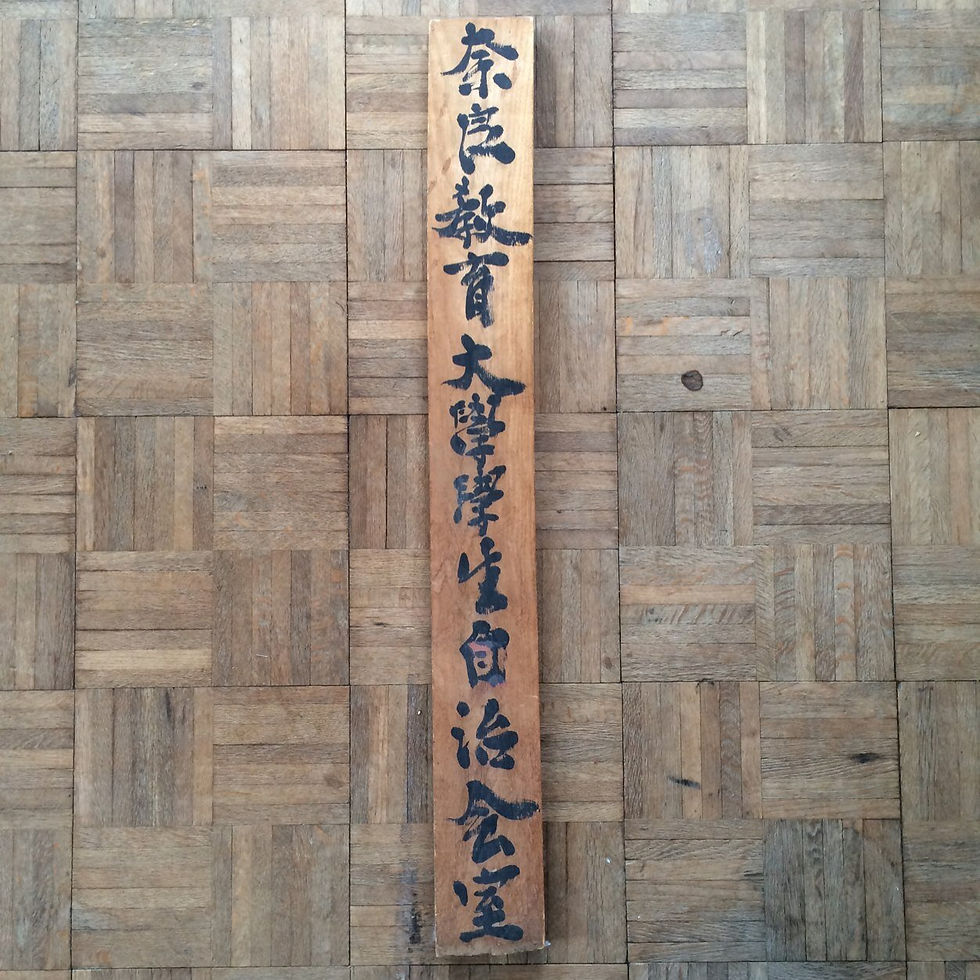 奈良教育大學學生自治会室